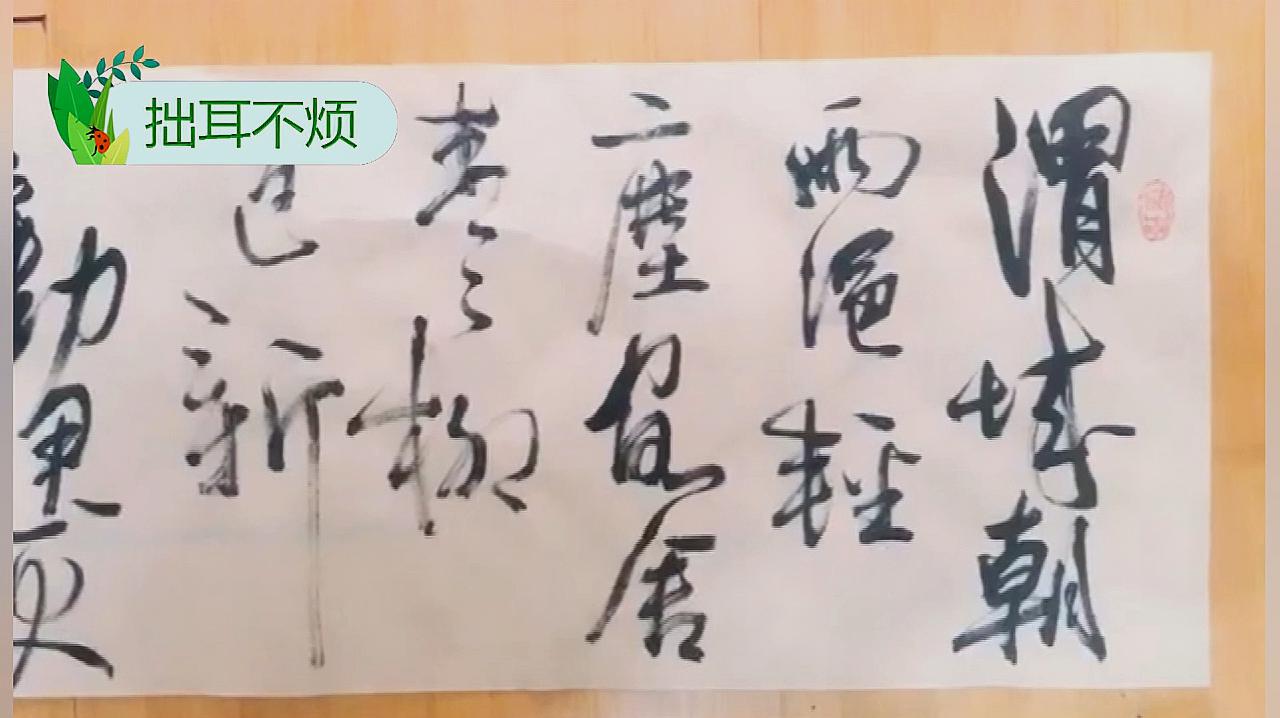 拙耳不烦
渭城朝
雨浥輕
塵客舍
青〻柳
色新
勸君更